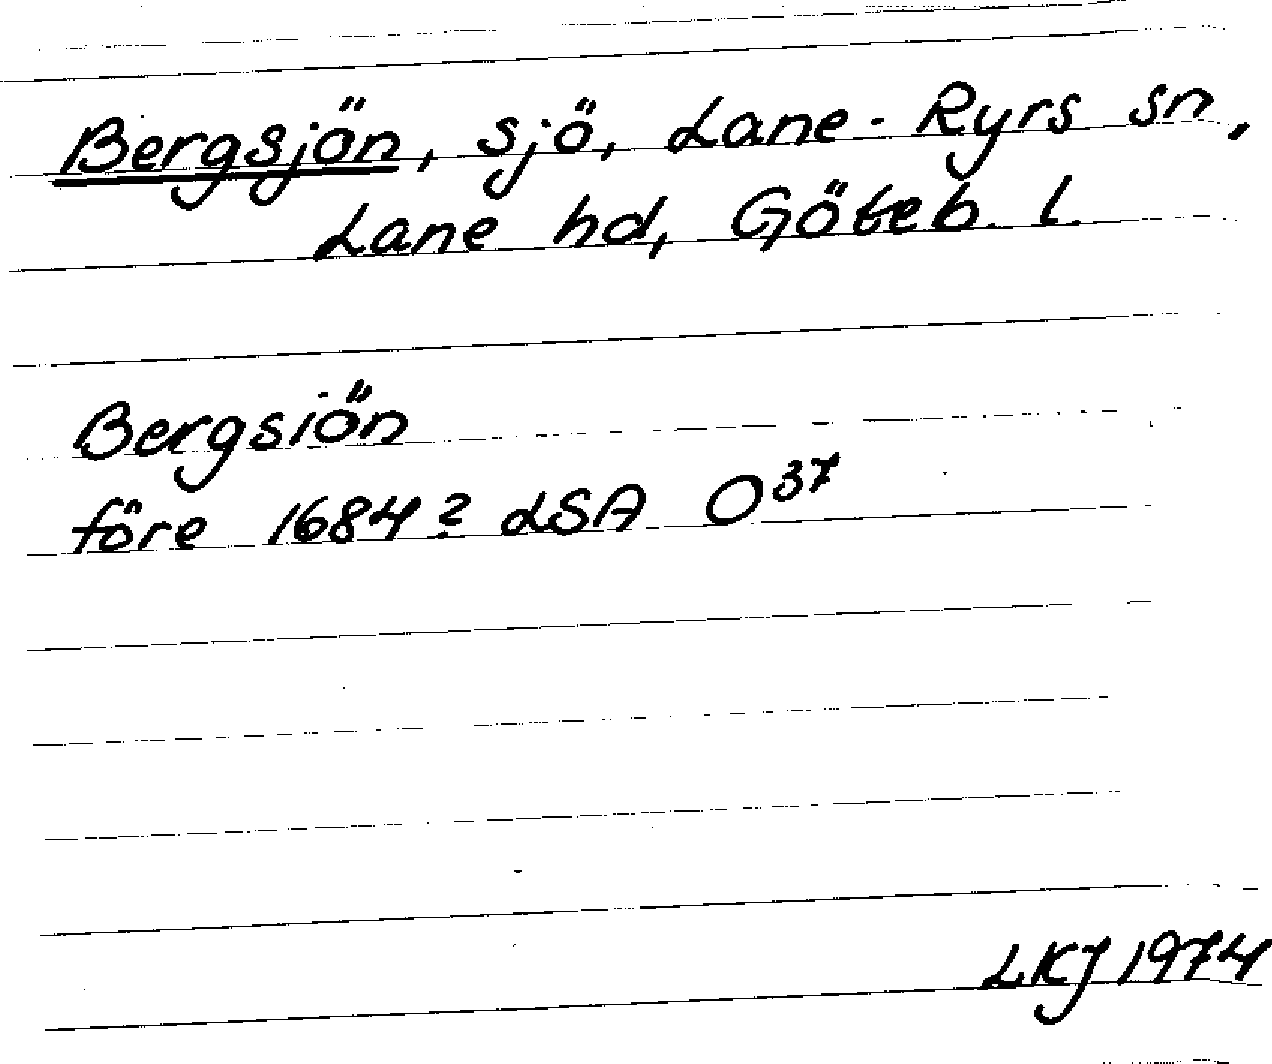 Bergsjön, sjö, Lane-Ryrs sn,
Lane hd, Göteb. l.
Bergsiön
före 1684? LSA O37
LKJ 1974